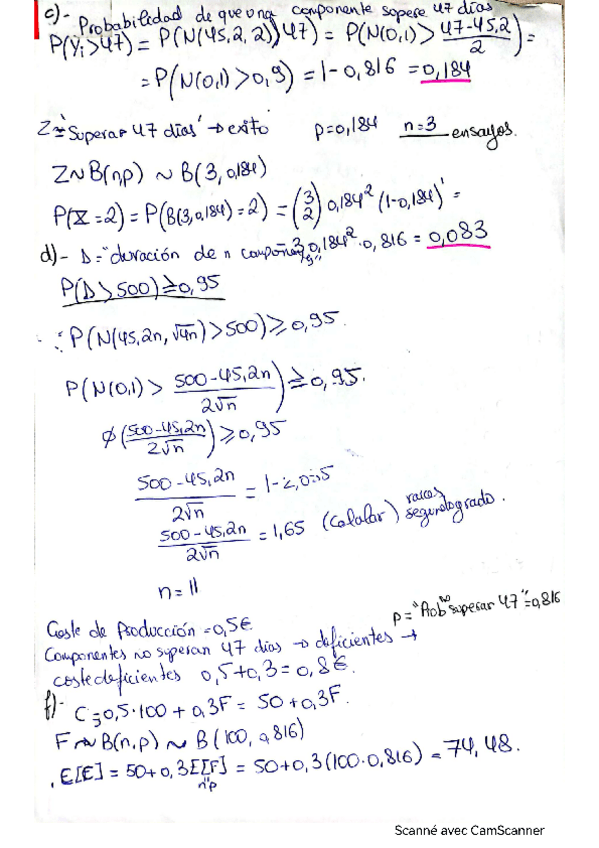 c)- Probabilidad de que una componente supere 47 días
P(Yi>47) = P(N(45,2, 2)>47) = P(N(0,1) > 47-45,2 / 2) =
= P(N(0,1) > 0,9) = 1 - 0,816 = 0,184
Z = "Superar 47 días" → exito p=0,184 n=3 ensayos.
Z ~ B(n,p) ~ B(3, 0,184)
P(X=2) = P(B(3, 0,184) = 2) = (3 2) 0,184² (1-0,184)¹ =
3 0,184² · 0,816 = 0,083
d)- D = "duración de n componentes"
P(D > 500) ≥ 0,95
P(N(45,2n, √4n) > 500) ≥ 0,95.
P(N(0,1) > 500-45,2n / 2√n) ≥ 0,95.
φ(500-45,2n / 2√n) ≥ 0,95
500-45,2n / 2√n = 1-
500-45,2n / 2√n = 1,65 (Calcular) raices segundo grado.
n = 11
p = "Prob no superar 47" = 0,816
Coste de Producción = 0,5€
Componentes no superan 47 días → deficientes →
coste deficientes 0,5+0,3 = 0,8€.
f)- C = 0,5·100 + 0,3F = 50 + 0,3F.
F ~ B(n,p) ~ B(100, 0,816)
E[E] = 50+0,3E[F] = 50+0,3(100·0,816) = 74,48.
n·p
Scanné avec CamScanner